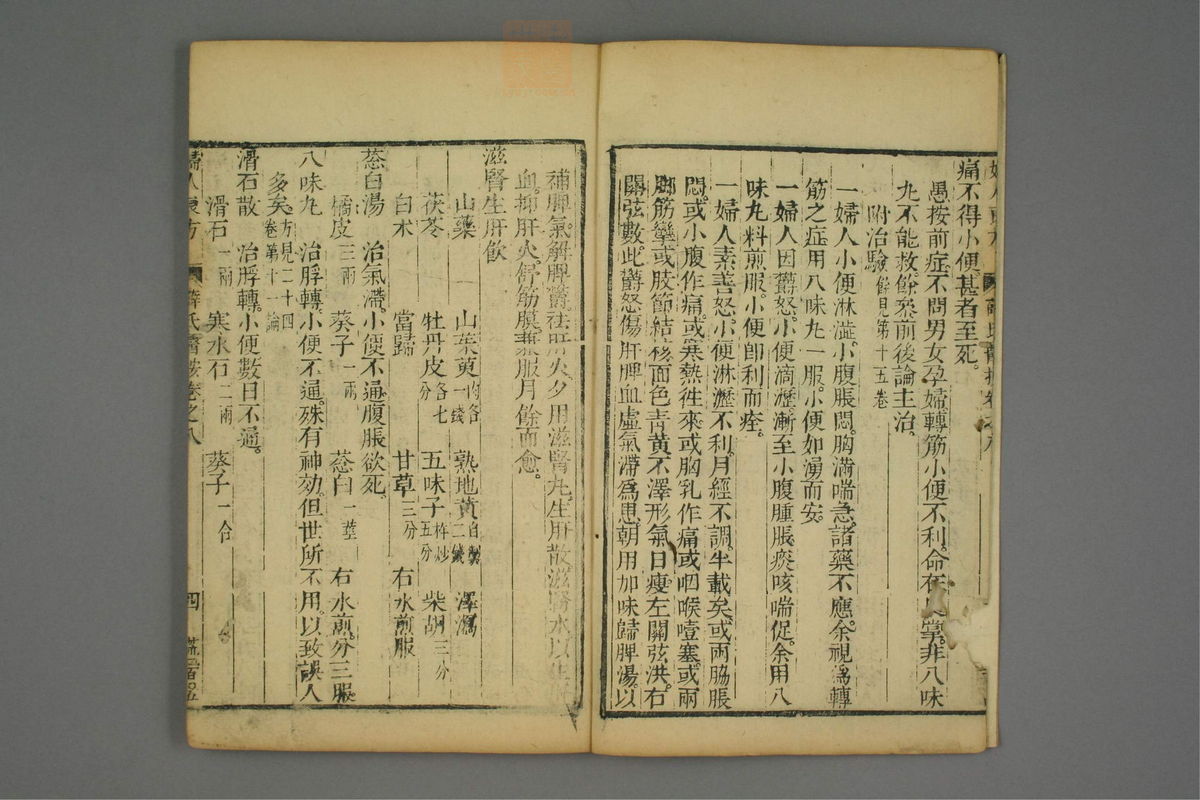 痛不得小便甚者至死。
愚按前症不問男女孕婦轉筋小便不利。命在掌。非八味
丸不能救餘參前後論主治。
附治驗餘見第十五卷
一婦人小便淋澁。小腹脹悶。胸滿喘急。諸藥不應。余視爲轉
筋之症用八味丸一服。小便如湧而安。
一婦人因欝怒。小便滴瀝。漸至小腹腫脹痰咳喘促。余用八
味丸料煎服。小便卽利而痊。
一婦人素善怒。小便淋瀝不利。月經不調。半載矣。或兩脇脹
悶。或小腹作痛。或寒熱徃來或胸乳作痛或咽喉噎塞。或兩
脚筋攣或肢節結核面色青黃不澤形氣日瘦左關弦洪。右
關弦數。此欝怒傷肝脾血虛氣滯爲患。朝用加味歸脾湯以
補脾氣。解脾欝。祛肝火。夕用滋腎丸。生肝散滋腎水以生肝
血。抑肝火。舒筋膜兼服月餘而愈。
滋腎生肝飲
山藥 山茱萸各一錢 熟地黃自製二錢 澤瀉
茯苓 牡丹皮各七分 五味子杵炒五分 柴胡三分
白朮 當歸 甘草三分 右水煎服
葱白湯 治氣滯。小便不通。腹脹欲死。
橘皮三兩 葵子一兩 葱白一莖 右水煎。分三服。
八味丸 治脬轉。小便不通。殊有神効。但世所不用。以致誤人
多矣。方見二十四卷第十一論
滑石散 治脬轉。小便數日不通。
滑石一兩 寒水石二兩 葵子一合
婦人良方 薛氏醫按卷之八 四